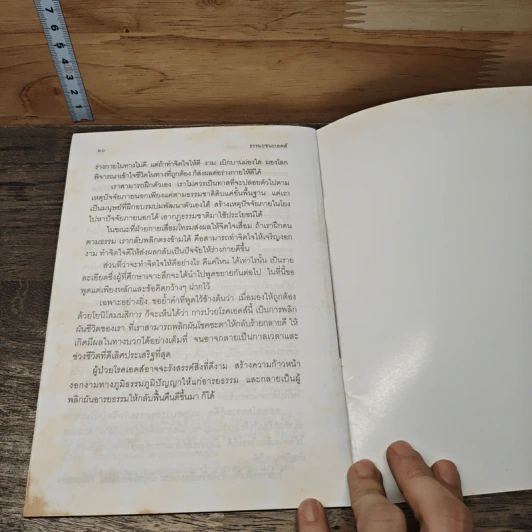 ๒๐ ธรรมะชนะเอดส์
ร่างกายในทางไม่ดี แต่ถ้าทำจิตใจให้ดี งาม เบิกบานผ่องใส มองโลก
พิจารณาเข้าใจชีวิตในทางที่ถูกต้อง ก็ส่งผลต่อร่างกายให้ดีได้
เราสามารถฝึกตัวเอง เราไม่ควรเป็นทาสที่จะปล่อยตัวไปตาม
เหตุปัจจัยภายนอกเพียงแค่ตามธรรมชาติดิบแค่ขั้นพื้นฐาน แต่เรา
เป็นมนุษย์ที่ฝึกอบรมบ่มพัฒนาตัวเองได้ สร้างเหตุปัจจัยภายในโยง
ไปหาปัจจัยภายนอกได้ เอากฎธรรมชาติมาใช้ประโยชน์ได้
ในขณะที่ฝ่ายกายเสื่อมโทรมส่งผลให้จิตใจเสื่อม ถ้าเราฝึกตน
ตามธรรม เรากลับพลิกตรงข้ามได้ คือสามารถทำจิตใจให้เจริญงอก
งาม ทำจิตใจดีให้ส่งผลกลับเป็นปัจจัยให้ร่างกายดีขึ้น
ส่วนที่ว่าจะทำจิตใจให้ดีอย่างไร ดีแค่ไหน ได้เท่าไรนั้น เป็นราย
ละเอียดซึ่งผู้ที่ศึกษาเจาะลึกจะได้นำไปพูดขยายกันต่อไป ในที่นี้ขอ
พูดแค่เพียงหลักและข้อคิดกว้างๆ ฝากไว้
เฉพาะอย่างยิ่ง ขอย้ำคำที่พูดไว้ข้างต้นว่า เมื่อมองให้ถูกต้อง
ด้วยโยนิโสมนสิการ ก็จะเห็นได้ว่า การป่วยโรคเอดส์นี้ เป็นการพลิก
ผันชีวิตของเรา ที่เราสามารถพลิกผันโชคชะตาให้กลับร้ายกลายดี ให้
เกิดมีผลในทางบวกได้อย่างเต็มที่ จนอาจกลายเป็นกาลเวลาและ
ช่วงชีวิตที่ดีเลิศประเสริฐที่สุด
ผู้ป่วยโรคเอดส์อาจจะรังสรรค์สิ่งที่ดีงาม สร้างความก้าวหน้า
งอกงามทางภูมิธรรมภูมิปัญญาให้แก่อารยธรรม และกลายเป็นผู้
พลิกผันอารยธรรมให้กลับฟื้นคืนดีขึ้นมา ก็ได้
7
6
5
4
3
2
1